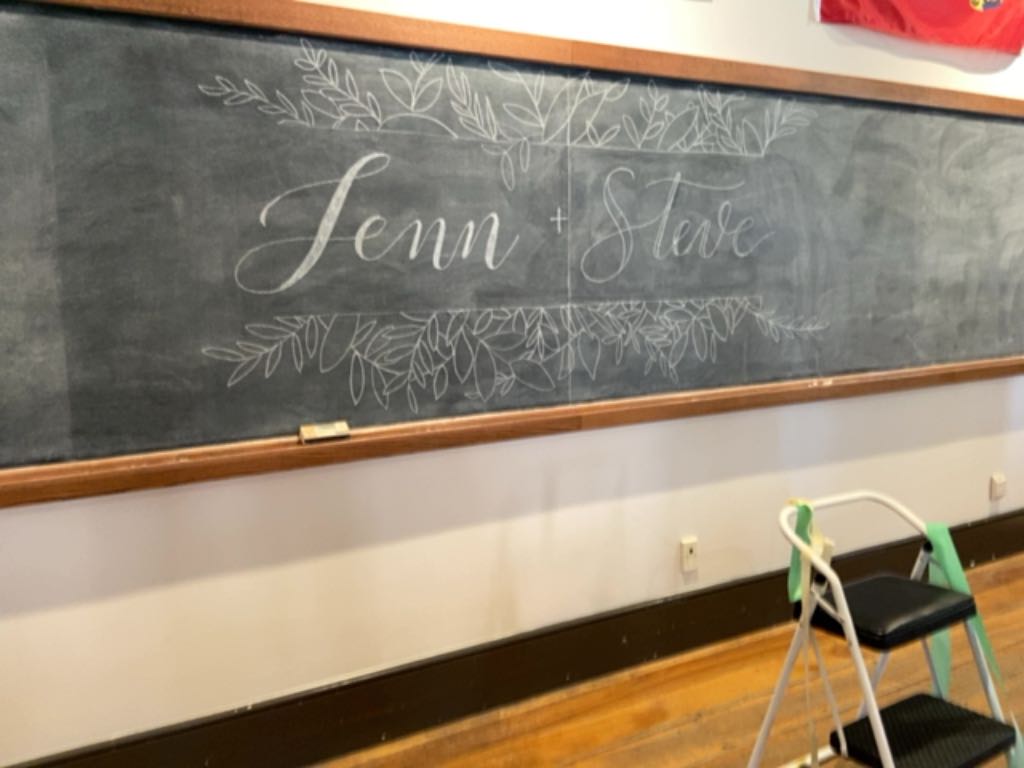 Jenn + Steve